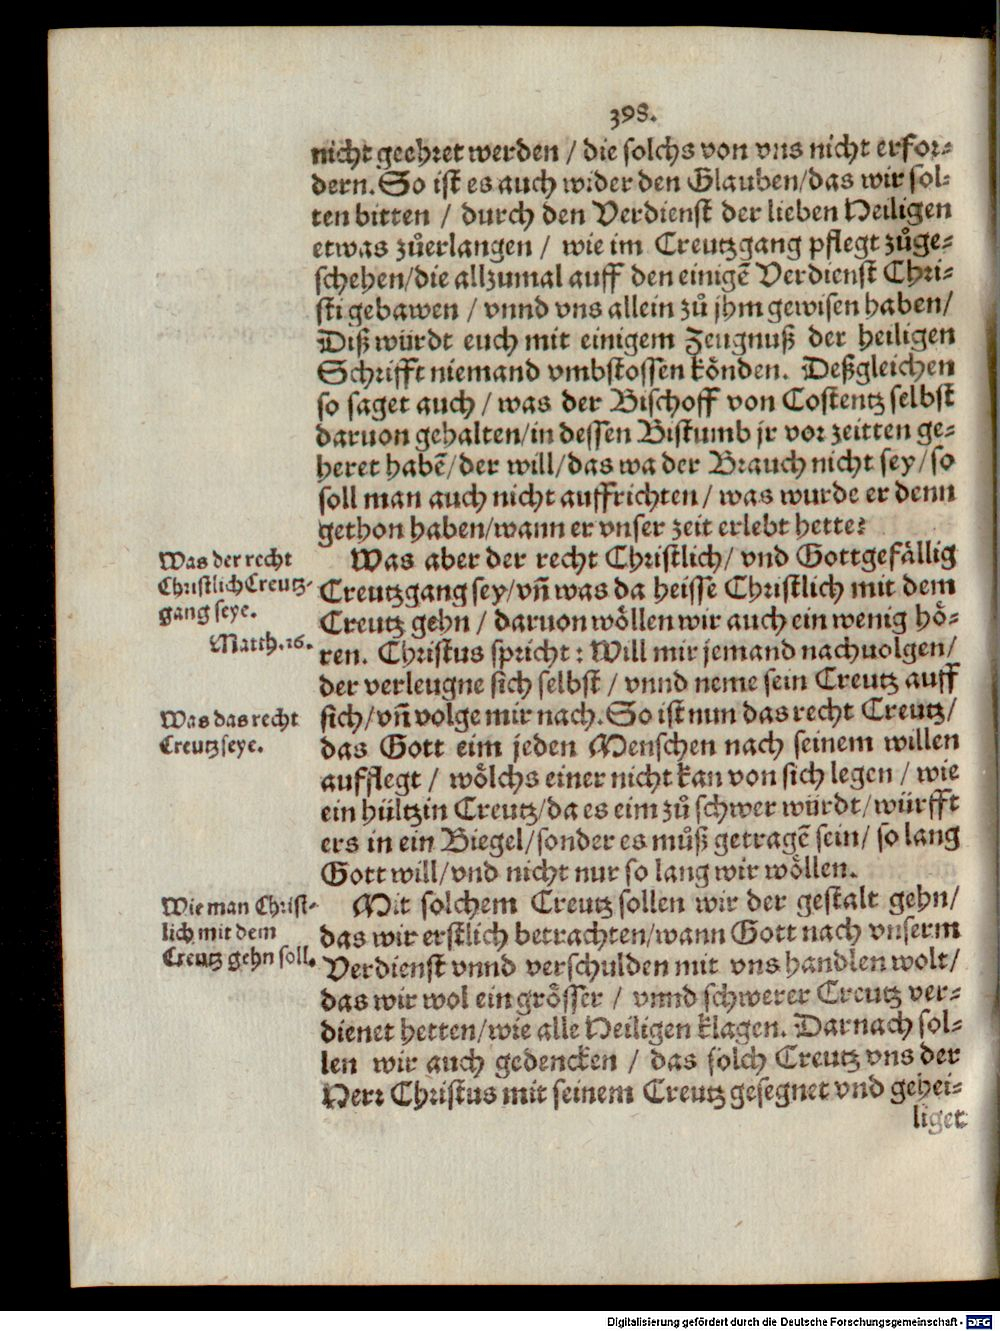 398.
nicht geehret werden / die solchs von vns nicht erfor-
dern. So ist es auch wider den Glauben/das wir sol-
ten bitten / durch den Verdienst der lieben Heiligen
etwas zůerlangen / wie im Creutzgang pflegt zůge-
schehen/die allzumal auff den einigẽ Verdienst Chri-
sti gebawen / vnnd vns allein zů jhm gewisen haben/
Diß würdt euch mit einigem Zeugnuß der heiligen
Schrifft niemand vmbstossen könden. Deßgleichen
so saget auch / was der Bischoff von Costentz selbst
daruon gehalten/in dessen Bistumb jr vor zeitten ge-
heret habẽ/der will/das wa der Brauch nicht sey/so
soll man auch nicht auffrichten / was wurde er denn
gethon haben/wann er vnser zeit erlebt hette?
Was der recht
Christlich Creutz-
gang seye.
Matth.16.
Was aber der recht Christlich/ vnd Gottgefällig
Creutzgang sey/vñ was da heisse Christlich mit dem
Creutz gehn / daruon wöllen wir auch ein wenig hö-
ren. Christus spricht: Will mir jemand nachuolgen/
der verleugne sich selbst / vnnd neme sein Creutz auff
Was das recht
Creutz seye.
sich/vñ volge mir nach. So ist nun das recht Creutz/
das Gott eim jeden Menschen nach seinem willen
aufflegt / wölchs einer nicht kan von sich legen / wie
ein hültzin Creutz/da es eim zů schwer würdt/würfft
ers in ein Biegel/sonder es můß getragẽ sein/ so lang
Gott will/vnd nicht nur so lang wir wöllen.
Wie man Christ-
lich mit dem
Creutz gehn soll.
Mit solchem Creutz sollen wir der gestalt gehn/
das wir erstlich betrachten/wann Gott nach vnserm
Verdienst vnnd verschulden mit vns handlen wolt/
das wir wol ein grösser / vnnd schwerer Creutz ver-
dienet hetten/wie alle Heiligen klagen. Darnach sol-
len wir auch gedencken / das sölch Creutz vns der
Herr Christus mit seinem Creutz gesegnet vnd gehei-
liget
Digitalisierung gefördert durch die Deutsche Forschungsgemeinschaft - DFG